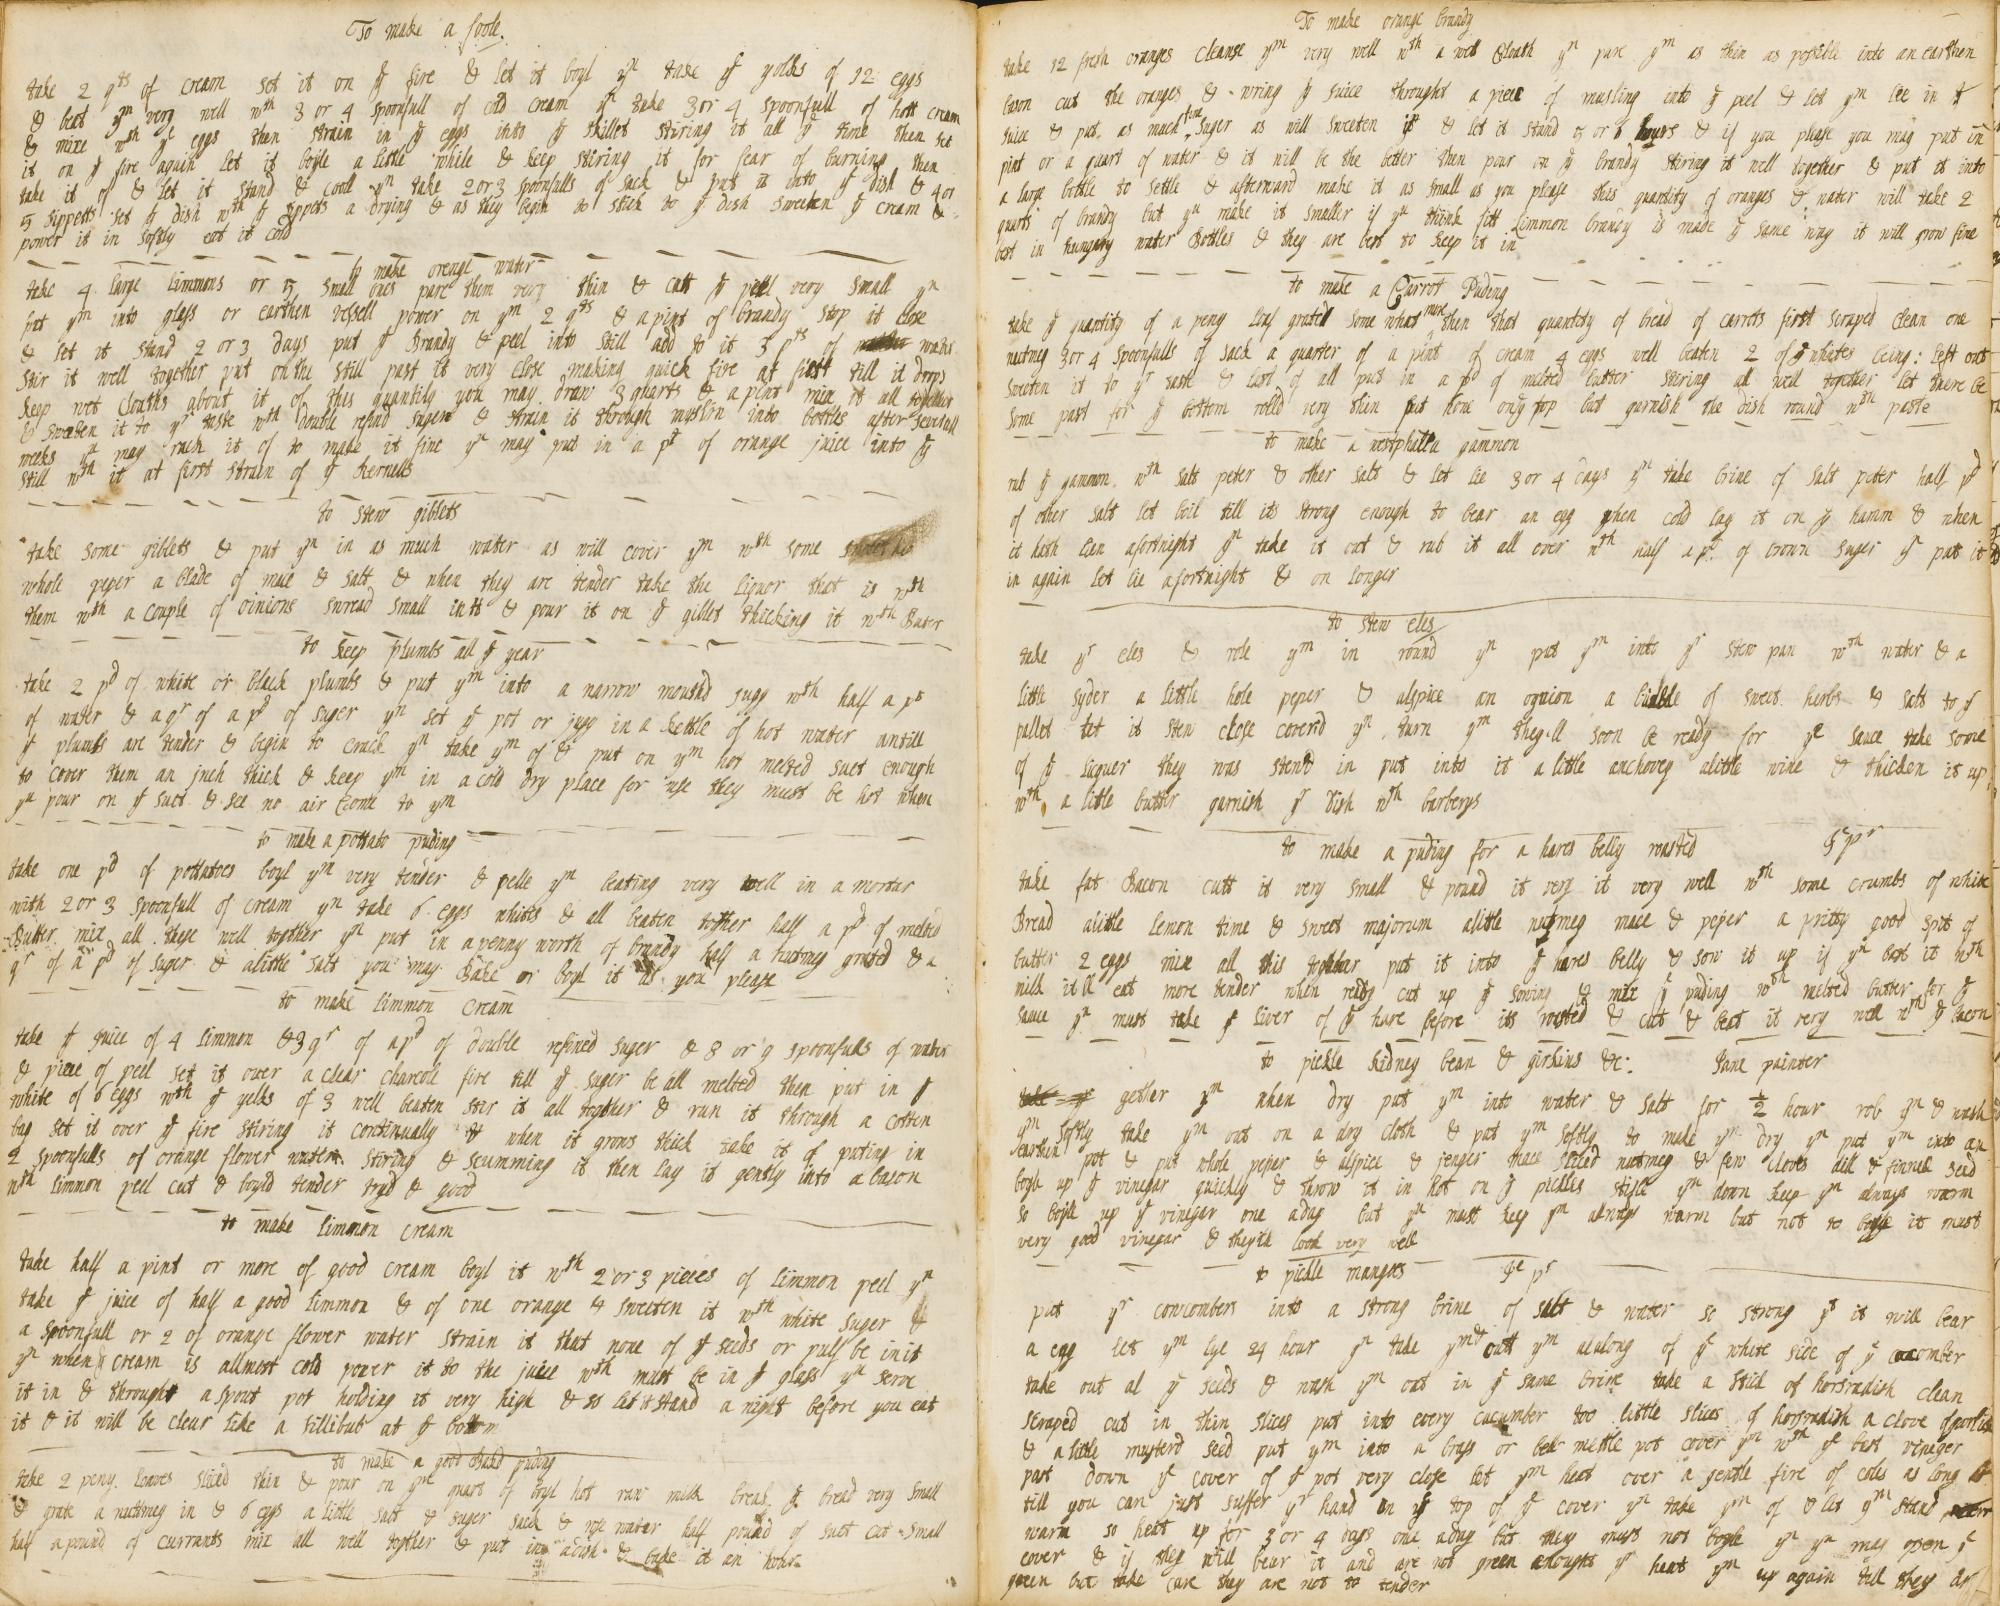 To make a foole.
take 2 qts of cream set it on ye fire & let it boyl yn take ye yolks of 12 eggs
& beat ym very well wth 3 or 4 spoonfull of cold cream yn take 3 or 4 spoonfull of hott cream
& mixe wth ye eggs then strain in ye eggs into ye skillet stiring it all ye time then set
it on ye fire again let it boyle a little while & keep stiring it for fear of burning then
take it of & let it stand & cooll yn take 2 or 3 spoonfulls of sack & put it into ye dish & 4 or
5 sippetts set ye dish wth ye sippets a drying & as they begin to stick to ye dish sweeten ye cream &
power it in softly eat it cold
to make orenge water
take 4 large limmons or 5 small ones pare them very thin & cutt ye peel very small yn
put ym into glass or earthen vessell power on ym 2 qts & a pint of brandy stop it close
& let it stand 2 or 3 days put ye Brandy & peel into still add to it 3 pts of water
stir it well together put on the still past it very close making quick fire at first till it drops
keep wet clouths about it of this quantity you may draw 3 quarts & a pint mix it all together
& sweeten it to yr taste wth double refind suger & strain it through muslin into bottles after severall
weeks yn may rack it of to make it fine yn may put in a pt of orange juice into ye
still wth it at first strain of ye kernells
to stew giblets
take some giblets & put ym in as much water as will cover ym wth some
whole peper a blade of mace & salt & when they are tender take the liquor that is wth
them wth a couple of oinions shread small in it & pour it on ye giblet thicking it wth Buter
to keep plumbs all ye year
take 2 pd of white or black plumbs & put ym into a narrow mouthd jugg wth half a pt
of water & a qr of a pd of suger yn set ye pot or jugg in a kettle of hot water untill
ye plumbs are tender & begin to crack yn take ym of & put on ym hot melted suet enough
to cover them an inch thick & keep ym in a cold dry place for use they must be hot when
yn pour on ye suet & see no air come to ym
to make a pottato puding
take one pd of pottatoes boyl ym very tender & pelle ym beating very well in a morter
with 2 or 3 spoonfull of cream yn take 6 eggs whites & all beaten tother half a pd of melted
Butter mix all these well togther yn put in a penny worth of brandy half a nutmeg grated & a
qr of a pd of suger & a little salt you may Bake or boyl it as you please
to make limmon cream
take ye juice of 4 limmon & 3 qr of a pd of double refined suger & 8 or 9 spoonfulls of water
& piece of peel set it over a clear charcole fire till ye suger be all melted then put in ye
white of 6 eggs wth ye yelks of 3 well beaten stir it all togther & run it through a cotten
bag set it over ye fire stiring it continually & when it grows thick take it of puting in
2 spoonfulls of orange flower water stiring & scumming it then lay it gently into a bason
wth limmon peel cut & boyld tender tryd & good
to make limmon cream
take half a pint or more of good cream boyl it wth 2 or 3 pieces of limmon peel yn
take ye juice of half a good limmon & of one orange & sweeten it wth white suger &
a spoonfull or 2 of orange flower water strain it that none of ye seeds or pulf be in it
yn when ye cream is allmost cold power it to the juice wth must be in ye glass yn serve
it in & throught a spout pot holding it very high & so let it stand a night before you eat
it & it will be clear like a sillibub at ye bottom
to make a good Bakd puding
take 2 peny loaves sliced thin & pour on ym quart of boyl hot raw milk break ye bread very small
& grate a nuttmeg in & 6 eggs a little salt & suger sack & rose water half pound of suet cut small
half a pound of currants mix all well togther & put in a dish & bake it an hour
To make orange brandy
take 12 fresh oranges cleanse ym very well wth a wet Cloath yn pare ym as thin as possible into an earthen
bason cut the oranges & wring ye juice throught a piece of musling into ye peel & let ym lie in ye
juice & put as much fine suger as will sweeten it & let it stand 5 or 6 hours & if you please you may put in
pint or a quart of water & it will be the better then pour on ye brandy stiring it well together & put it into
a large bottle to settle & afterward make it as small as you please this quantity of oranges & water will take 2
quarts of brandy but yn make it smaller if yn think fitt limmon brandy is made ye same way it will grow fine
best in hungary water Bottles & they are best to keep it in
to make a Carrot Puding
take ye quantity of a peny loaf grated some what more then that quantity of bread of carrets first scraped clean one
nutmeg 3 or 4 spoonfulls of sack a quarter of a pint of cream 4 eggs well beaten 2 of ye whites being left out
sweeten it to yr tast & last of all put in a pd of melted butter stiring all well together let there be
some past for ye bottom rolld very thin put none on ye top but garnish the dish round wth paste
to make a westphallea gammon
rub ye gammon wth salt peter & other salt & let lie 3 or 4 days yn take brine of salt peter half pd
of other salt let boil till its strong enough to bear an egg when cold lay it on ye hamm & when
it hath lien afortnight yn take it out & rub it all over wth half a pd of brown suger yn put it
in again let lie afortnight & on longer
to stew eles
take yr eles & role ym in round yn put ym into yr stew pan wth water & a
little syder a little hole peper & alspice an ognion a bundle of sweet herbs & salt to ye
pallet let it stew close coverd yn turn ym theyll soon be ready for ye sauce take some
of ye licquer they was stewd in put into it a little anchovey alittle wine & thicken it up
wth a little butter garnish yr dish wth barberys
to make a puding for a hares belly roasted ye pr
take fat Bacon cutt it very small & pound it very it very well wth some crumbs of white
Bread alittle lemon time & sweet majorum alittle nutmeg mace & peper a pritty good spit of
butter 2 eggs mix all this togther put it into ye hares belly & sow it up if yn bast it wth
milk itll eat more tender when ready cut up ye sowing & mix ye puding wth melted butter for ye
sauce yn must take ye liver of ye hare before its roasted & cut & beat it very well wth ye bacon
to pickle kidney bean & girkins &c: Jane painter
gether ym when dry put ym into water & salt for ½ hour rob ym & wash
ym softly take ym out on a dry cloth & put ym softly to make ym dry yn put ym into an
earthen pot & put whole peper & alspice & jenger mace sliced nutmeg & few cloves dill & finnell seed
boyle up ye vinegar quickly & throw it in hot on ye pickles stifle ym down keep ym always warm
so boyle up ye vinegar one aday but yn must keep ym always warm but not to boyle it must
very good vinegar & theyill look very well
to pickle mangoes ye pr
put yr cowcombers into a strong brine of salt & water so strong yt it will bear
a egg let ym lye 24 hour yn take ym & cutt ym alalong of ye white side of ye cucomber
take out al ye seeds & wash ym out in ye same brine take a stick of horsradish clean
scraped cut in thin slices put into every cucumber too little slices of horsradish a clove of garlick
& alittle musterd seed put ym into a brass or bell mettle pot cover ym wth ye best vineger
past down ye cover of ye pot very close let ym heat over a gentle fire of coles as long
till you can just suffer yr hand on ye top of ye cover yn take ym of & let ym stand
warm so heat up for 3 or 4 days one aday but they must not boyle yn yn may open ye
cover & if they will bear it and are not green enought yn heat ym up again till they are
green but take care they are not to tender